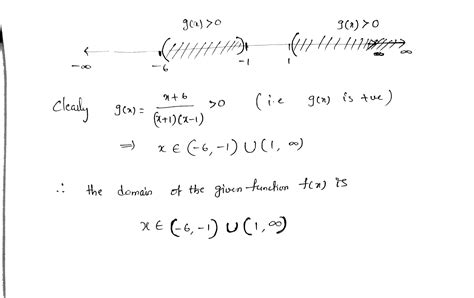 g(x)>0 g(x)>0
-∞ -6 -1 1 ∞
Clearly g(x) = x+6 / (x+1)(x-1) >0 (i.e g(x) is +ve)
⇒ x ∈ (-6,-1) ∪ (1, ∞)
∴ the domain of the given function f(x) is
x ∈ (-6,-1) ∪ (1, ∞)